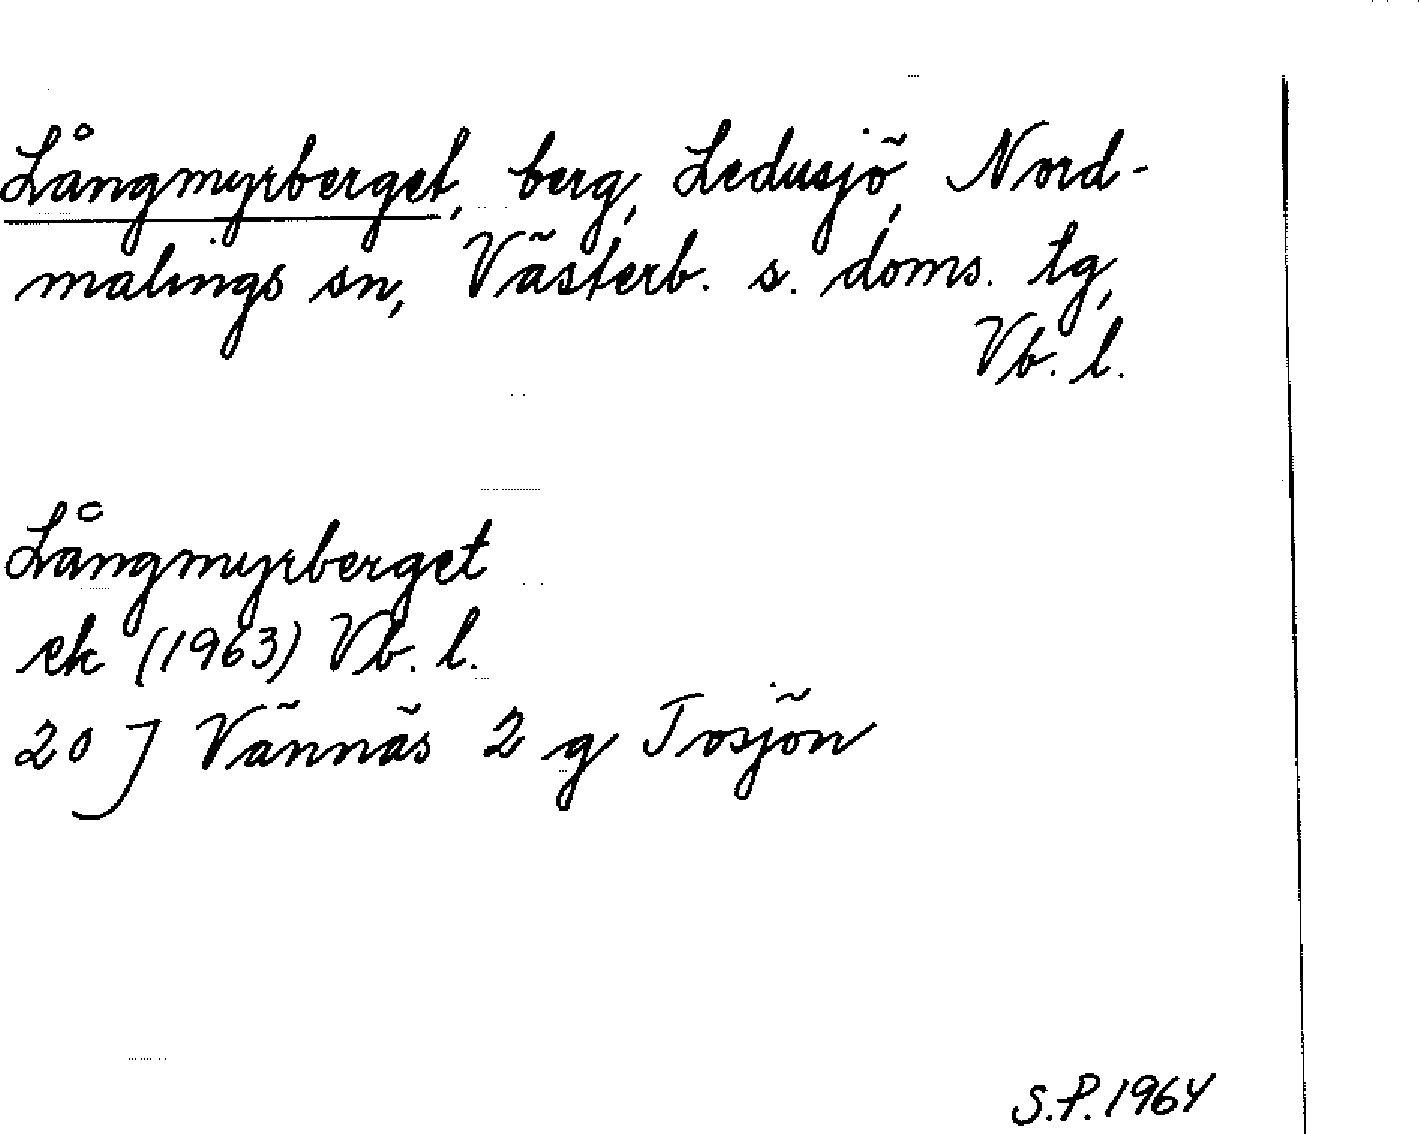 Långmyrberget, berg, Ledusjö, Nord-
malings sn, Västerb. s. doms. tg,
Vb. l.
Långmyrberget
ek (1963) Vb. l.
20 J Vännäs 2 g Tosjön
S.P. 1964